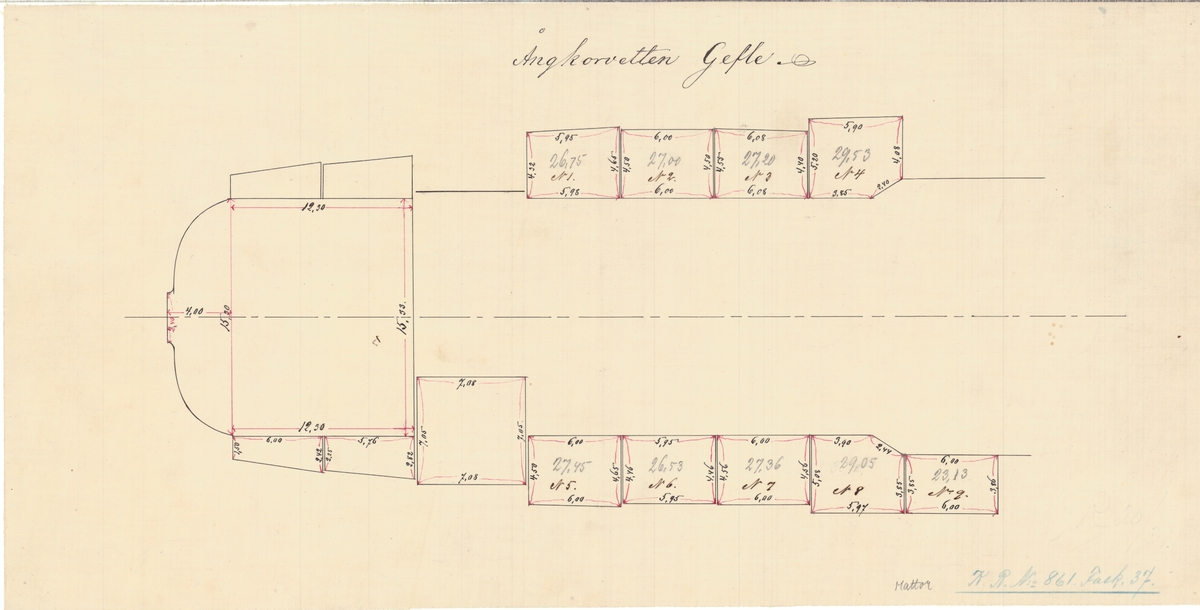 Ångkorvetten Gefle.
5,95 6,00 6,08 5,90
26,75 27,00 27,20 29,53
4,22 4,65 4,50 4,50 4,55 4,40 5,20 4,08
N 1. N 2. N 3 N 4
5,98 6,00 6,08 3,85 2,40
12,30
4,00 15,20 15,33.
2,40
12,30
7,08
6,00 5,76 7,05 7,05
2,42 2,55 2,82
7,05
6,00 5,95 6,00 3,90 2,44 6,00
27,45 26,53 27,36 29,05 23,13
4,50 4,65 4,46 4,46 4,56 4,56 5,02 3,85 3,85 3,86
N 5. N 6. N 7 N 8 No 9.
6,00 5,95 6,00 5,97 6,00
Mattor
K. R. No 861. Fack. 37.